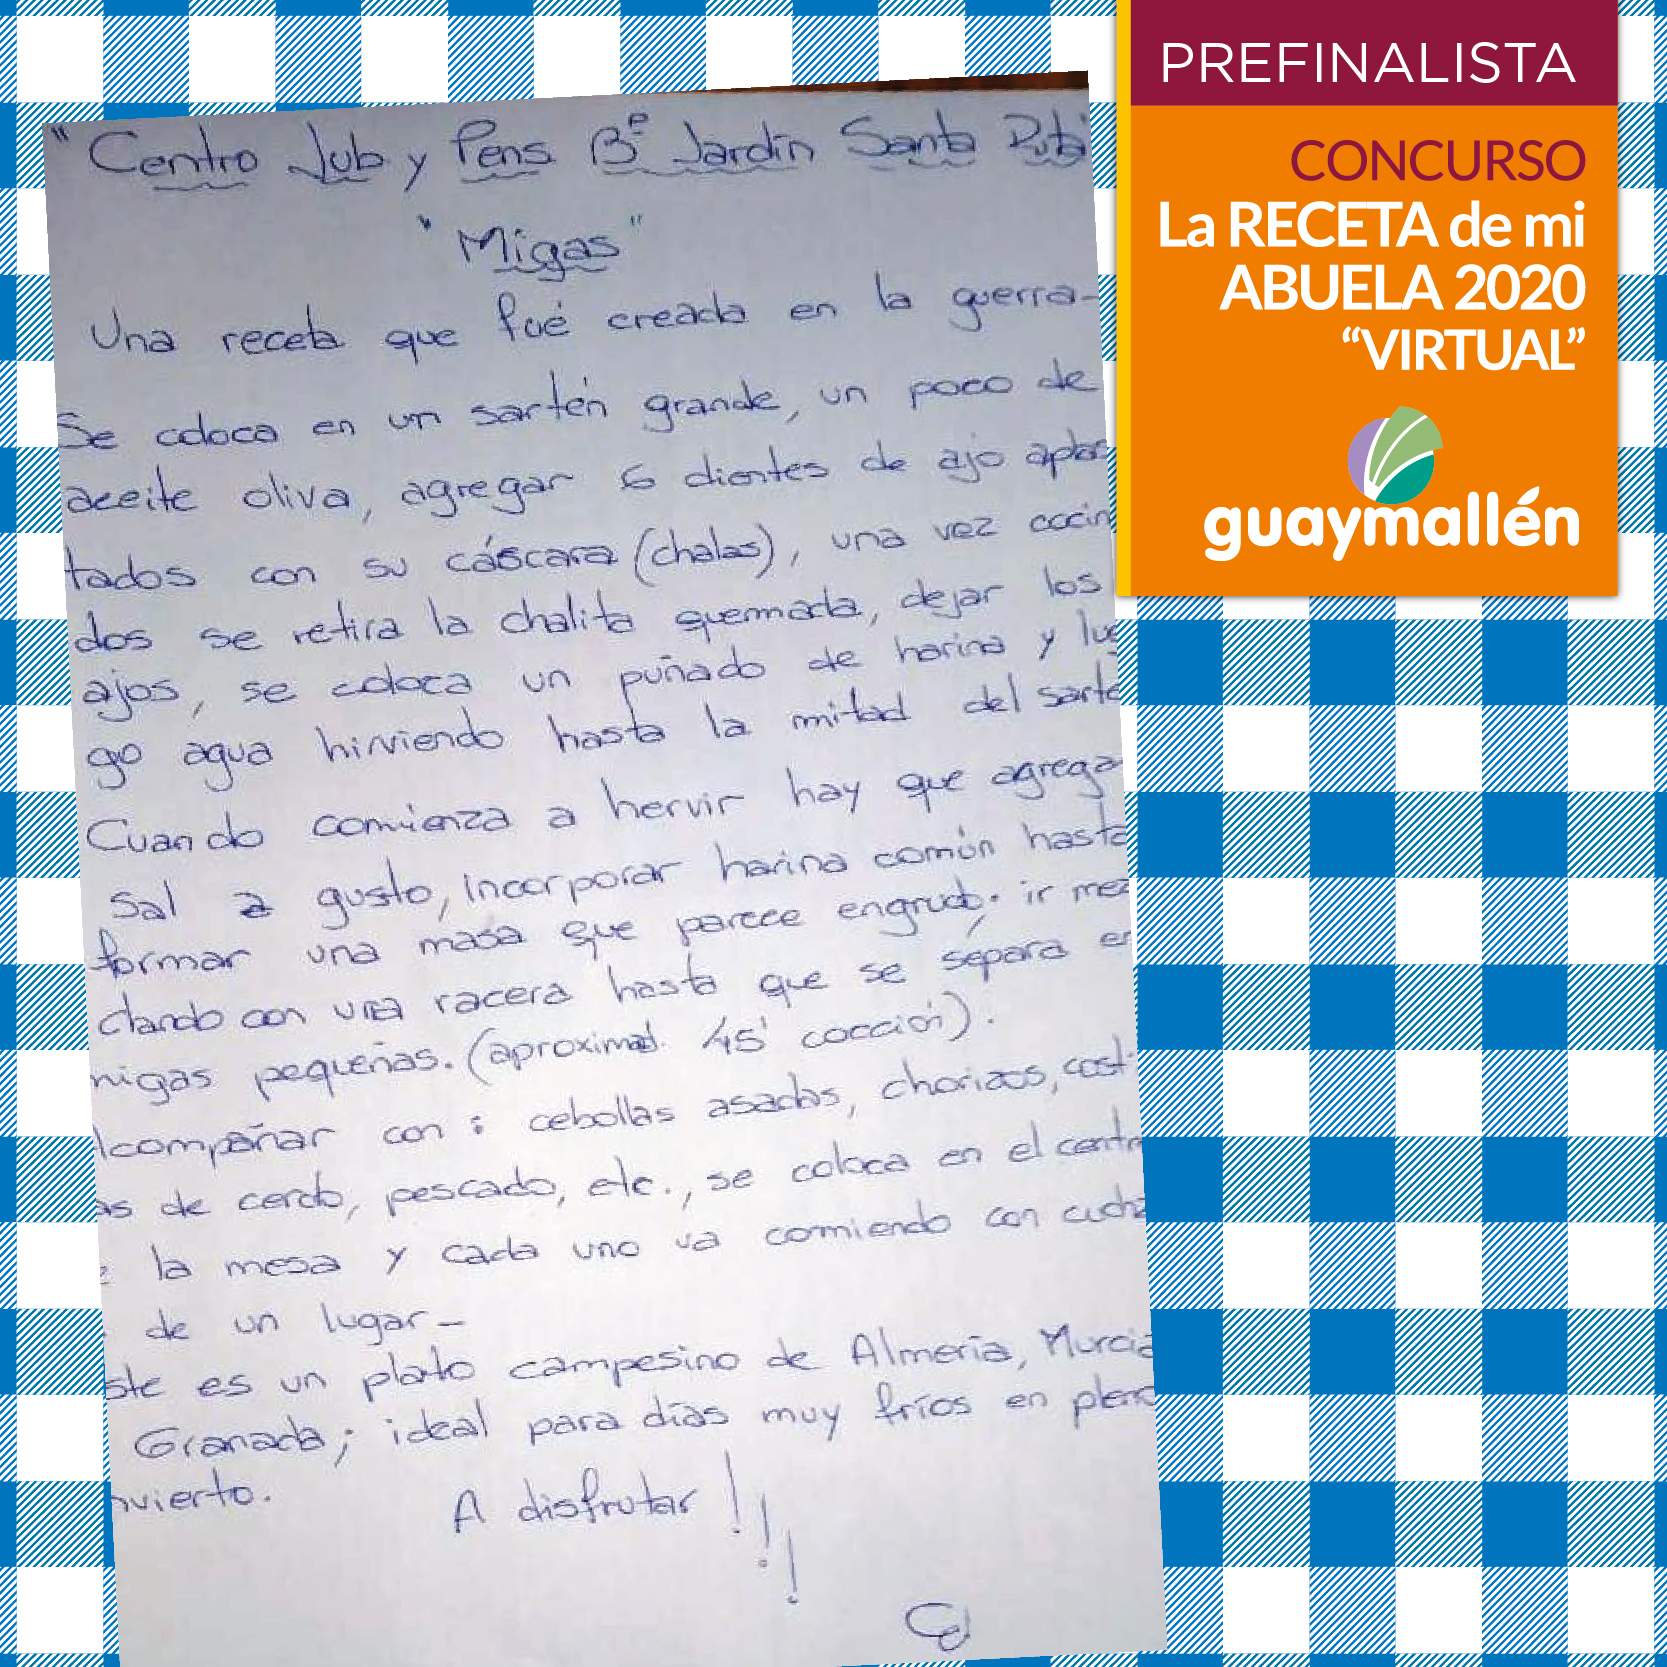 "Centro Jub y Pens Bº Jardín Santa Rita"
"Migas"
Una receta que fué creada en la guerra-
Se coloca en un sartén grande, un poco de
aceite oliva, agregar 6 dientes de ajo aplas
tados con su cáscara (chalas), una vez cocin
dos se retira la chalita quemada, dejar los
ajos, se coloca un puñado de harina y lue
go agua hirviendo hasta la mitad del sarté
Cuando comienza a hervir hay que agrega
sal a gusto, incorporar harina común hasta
formar una masa que parece engrudo. ir mez
clando con una racera hasta que se sépara en
migas pequeñas. (aproximad. 45' cocción).
Acompañar con: cebollas asadas, chorizos, costi
as de cerdo, pescado, etc., se coloca en el centro
e la mesa y cada uno va comiendo con cucha
de un lugar-
ste es un plato campesino de Almería, Murcia
Granada; ideal para días muy fríos en pleno
nvierto.
A disfrutar!!!
PREFINALISTA
CONCURSO
La RECETA de mi
ABUELA 2020
"VIRTUAL"
guaymallén